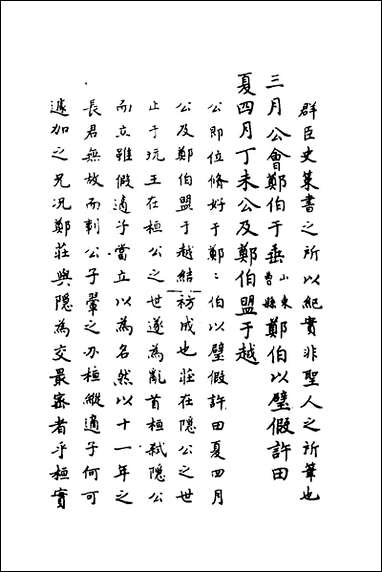 群臣史策書之所以紀實非聖人之所筆也
三月公會鄭伯于垂山東曹縣鄭伯以璧假許田
夏四月丁未公及鄭伯盟于越
公即位修好于鄭：伯以璧假許田夏四月
公及鄭伯盟于越結祊成也莊在隱公之世
止于沅王在桓公之世遂為亂首桓弒隱公
而立雖假適子當立以為名然以十一年之
長君無故而刺公子翬之刃桓縱適子何可
遽加之兄况鄭莊與隱為交最密者乎桓實